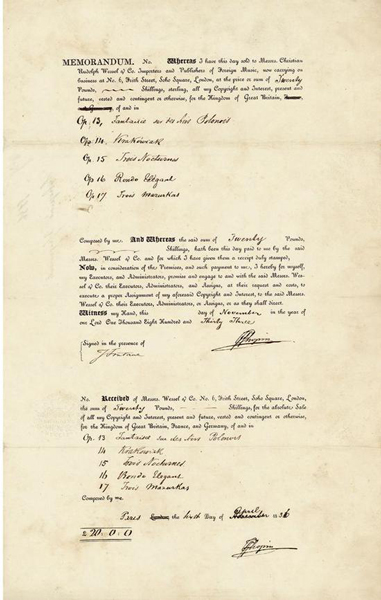 MEMORANDUM. No. Whereas I have this day sold to Messrs. Christian
Rudolph Wessel & Co. Importers and Publishers of Foreign Music, now carrying on
business at No. 6, Frith Street, Soho Square, London, at the price or sum of Twenty
Pounds, Shillings, sterling, all my Copyright and Interest, present and
future, vested and contingent or otherwise, for the Kingdom of Great Britain,
of and in
Op. 13, Fantaisie sur des Airs Polonois
Op. 14. Krakowiak
Op 15 Trois Nocturnes
Op 16 Rondo Elegant
Op 17 Trois Mazurkas
Composed by me. And Whereas the said sum of Twenty Pounds,
Shillings, hath been this day paid to me by the said
Messrs. Wessel & Co. and for which I have given them a receipt duly stamped;
Now, in consideration of the Premises, and such payment to me, I hereby for myself,
my Executors, and Administrators, promise and engage to and with the said Messrs. Wes-
sel & Co. their Executors, Administrators, and Assigns, at their request and costs, to
execute a proper Assignment of my aforesaid Copyright and Interest, to the said Messrs.
Wessel & Co. their Executors, Administrators, or Assigns, or as they shall direct.
Witness my Hand, this day of November in the year of
our Lord One Thousand Eight Hundred and Thirty Three.
Signed in the presence of
FChopin
No. Received of Messrs. Wessel & Co. No. 6, Frith Street, Soho Square, London,
the sum of Twenty Pounds, Shillings, for the absolute Sale
of all my Copyright and Interest, present and future, vested and contingent or otherwise,
for the Kingdom of Great Britain, France, and Germany, of and in
Op. 13 Fantaisie sur des Airs Polonois
14 Krakowiak
15 Trois Nocturnes
16 Rondo Elegant
17 Trois Mazurkas
Composed by me.
Paris London, the Day of April 183
£20.0.0
FChopin